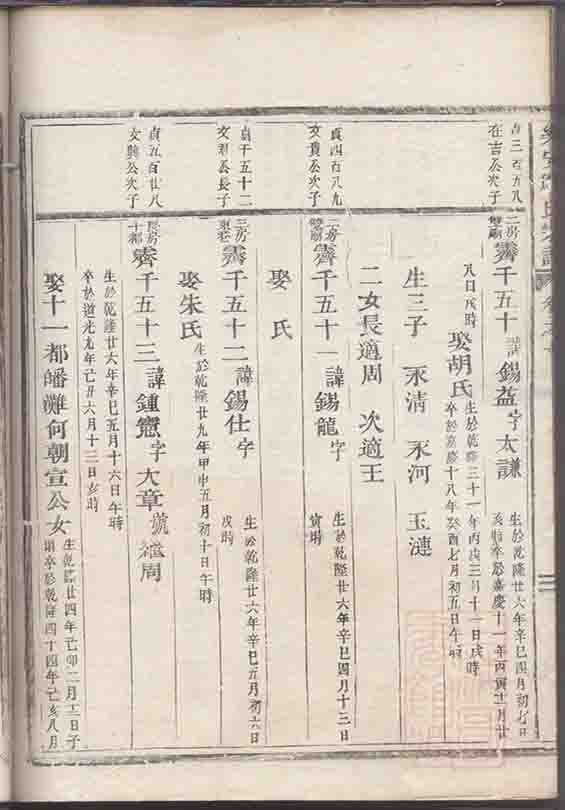 在吉公次子
二房
霽千五十
諱錫益字太謙
生於乾隆廿六年辛巳四月初七日
亥時卒於嘉慶十一年丙寅十二月廿
八日戌時
娶胡氏
生於乾隆三十一年丙戌三月十一日戌時
卒於嘉慶十八年癸酉七月初五日午時
生三子 永清 永河 玉漣
二女長適周 次適王
貞四百八九
文貴公次子
二房
霽千五十一諱錫龍字
生於乾隆廿六年辛巳四月十三日
寅時
娶 氏
貞千五十二
文君公長子
三房
霽千五十二諱錫仕字
生於乾隆廿六年辛巳五月初六日
戌時
娶朱氏
生於乾隆廿九年甲申五月初十日午時
貞五百廿八
文興公次子
長房
十都
霽千五十三諱鍾憲字大章號
周
生於乾隆廿六年辛巳五月十六日午時
卒於道光九年己丑六月十三日亥時
娶十一都皤灘何朝宣公女
生乾隆廿四年己卯二月十二日子
時卒於乾隆四十四年己亥八月